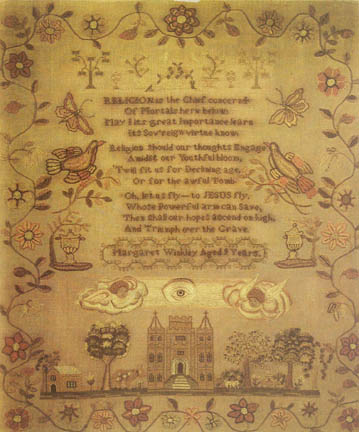 RELIGION is the Chief concern
Of Mortals here below.
May I its great Importance learn
Its Sovereign virtue know.
Religion Should our thoughts Engage
Amidst our Youthful bloom,
'Twill fit us for Declining age,
Or for the awful Tomb.
Oh, let us fly—to JESUS fly,
Whose Powerful arm can Save,
Then Shall our hopes ascend on high,
And Triumph over the Grave.
Margaret Aged 9 Years.